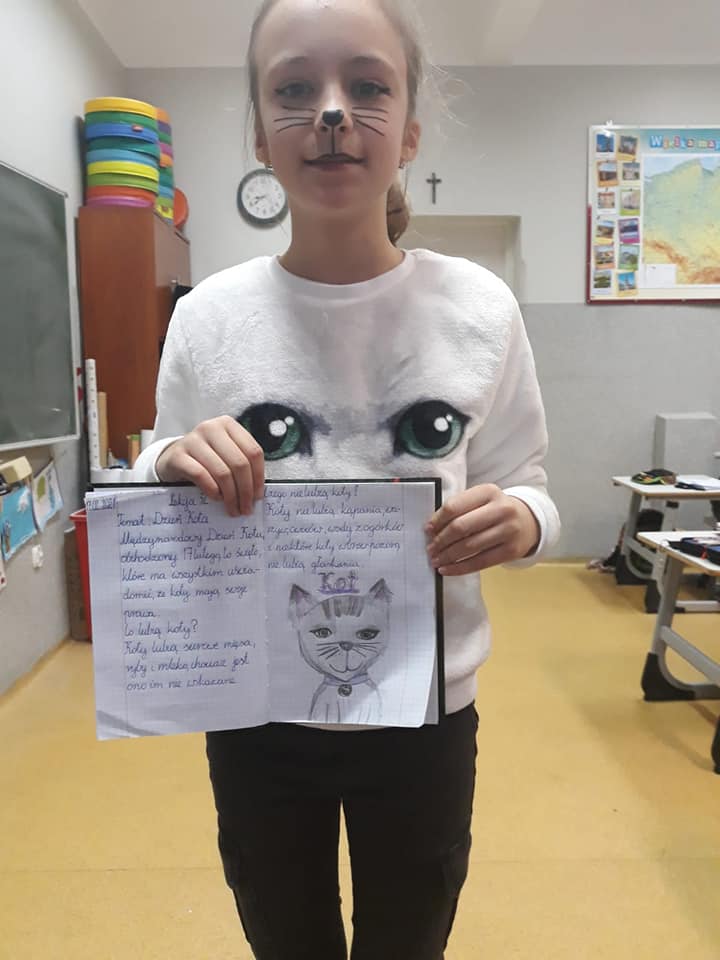 Wielka map
Lekcja
Temat: Dzień Kota
Międzynarodowy Dzień Kota,
obchodzony 17 lutego to święto,
które ma wszystkim uświa-
domić, że koty mają swoje
prawa.
Co lubią koty?
Koty lubią surowe mięso,
ryby i mleko, chociaż jest
ono im nie wskazane
Czego nie lubią koty?
Koty nie lubią kąpania, kr-
zyczących, wody, ogórków
i niektóre koty
nie lubią głaskania.
Kot